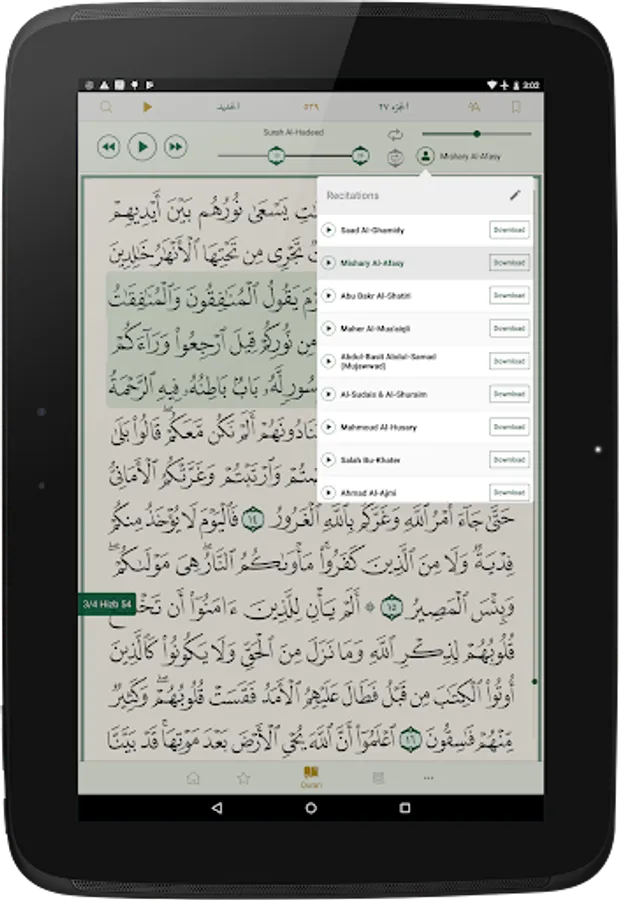 3:02
الحديد
٥٣٩
الجزء ٢٧
Surah Al-Hadeed
Mishary Al-Afasy
Recitations
Saad Al-Ghamidy
Download
Mishary Al-Afasy
Download
Abu Bakr Al-Shatiri
Download
Maher Al-Mua'aiqli
Download
Abdul-Basit Abdul-Samad
(Mujawwad)
Download
Al-Sudais & Al-Shuraim
Download
Mahmoud Al-Husary
Download
Salah Bu-Khater
Download
Ahmad Al-Ajmi
Download
يَسْعَىٰ نُورُهُم بَيْنَ أَيْدِيهِمْ
تَجْرِى مِن تَحْتِهَا ٱلْأَنْهَٰرُ خَٰلِدِينَ
يَقُولُ ٱلْمُنَٰفِقُونَ وَٱلْمُنَٰفِقَٰتُ
مِن نُّورِكُمْ قِيلَ ٱرْجِعُوا۟ وَرَآءَكُمْ
بِسُورٍ لَّهُۥ بَابٌۢ بَاطِنُهُۥ فِيهِ ٱلرَّحْمَةُ
يُنَادُونَهُمْ أَلَمْ نَكُن مَّعَكُمْ ۖ قَالُوا۟ بَلَىٰ
وَٱرْتَبْتُمْ وَغَرَّتْكُمُ ٱلْأَمَانِىُّ
حَتَّىٰ جَآءَ أَمْرُ ٱللَّهِ وَغَرَّكُم بِٱللَّهِ ٱلْغَرُورُ ١٤ فَٱلْيَوْمَ لَا يُؤْخَذُ مِنكُمْ
فِدْيَةٌ وَلَا مِنَ ٱلَّذِينَ كَفَرُوا۟ ۚ مَأْوَىٰكُمُ ٱلنَّارُ ۖ هِىَ مَوْلَىٰكُمْ ۖ
وَبِئْسَ ٱلْمَصِيرُ ١٥ ۞ أَلَمْ يَأْنِ لِلَّذِينَ ءَامَنُوٓا۟ أَن
3/4 Hizb 54
قُلُوبُهُمْ لِذِكْرِ ٱللَّهِ وَمَا نَزَلَ مِنَ ٱلْحَقِّ وَلَا يَكُونُوا۟ كَٱلَّذِينَ
أُوتُوا۟ ٱلْكِتَٰبَ مِن قَبْلُ فَطَالَ عَلَيْهِمُ ٱلْأَمَدُ فَقَسَتْ قُلُوبُهُمْ ۖ وَكَثِيرٌ
مِّنْهُمْ فَٰسِقُونَ ١٦ ٱعْلَمُوٓا۟ أَنَّ ٱللَّهَ يُحْىِ ٱلْأَرْضَ بَعْدَ مَوْتِهَا ۚ قَدْ بَيَّنَّا
Quran